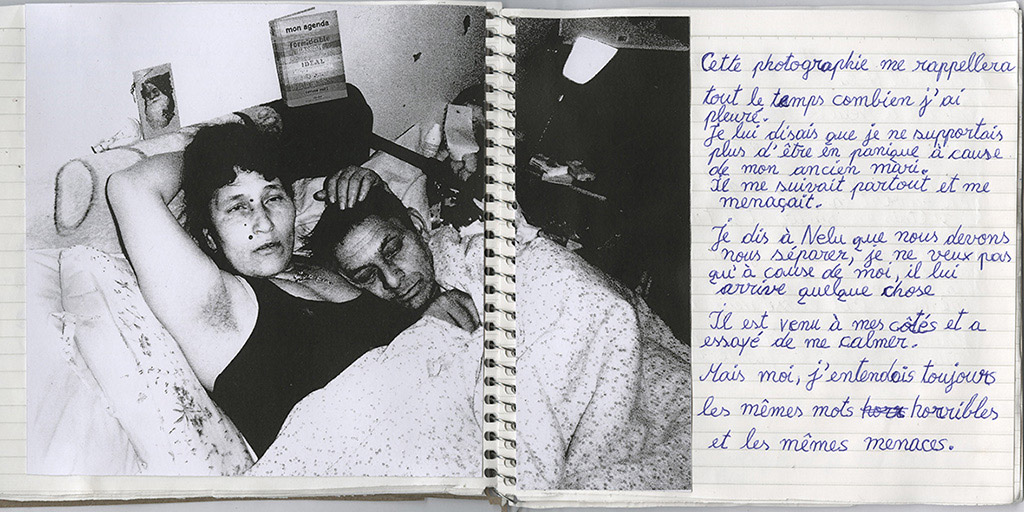 mon agenda
formidable
IDEAL
Cette photographie me rappellera
tout le temps combien j'ai
pleuré.
Je lui disais que je ne supportais
plus d'être en panique à cause
de mon ancien mari.
Il me suivait partout et me
menaçait.
Je dis à Nelu que nous devons
nous séparer, je ne veux pas
qu'à cause de moi, il lui
arrive quelque chose
Il est venu à mes côtés et a
essayé de me calmer.
Mais moi, j'entendais toujours
les mêmes mots horribles
et les mêmes menaces.